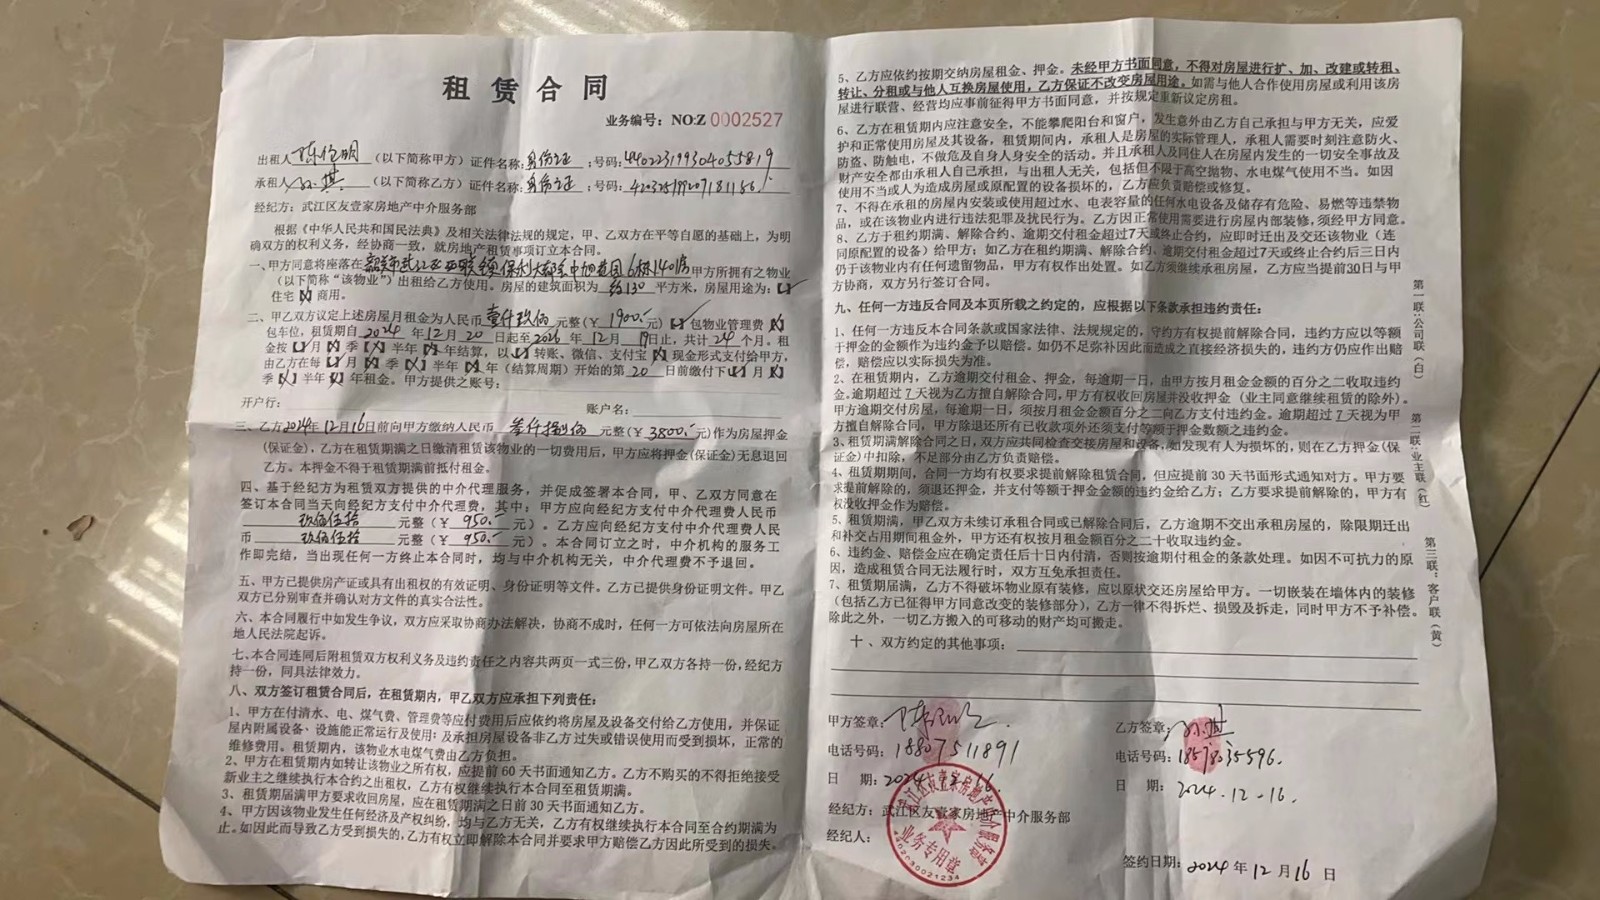 租赁合同
业务编号：NO:Z 0002527
出租人 （以下简称甲方）证件名称：身份证：号码：440223199304055819
承租人 （以下简称乙方）证件名称：身份证：号码：
经纪方：武江区友壹家房地产中介服务部
根据《中华人民共和国民法典》及相关法律法规的规定，甲、乙双方在平等自愿的基础上，为明
确双方的权利义务，经协商一致，就房地产租赁事项订立本合同。
一、甲方同意将座落在韶关市武江区西联镇保利大都会中旭花园6栋1401房甲方所拥有之物业
（以下简称“该物业”）出租给乙方使用。房屋的建筑面积为 约130 平方米，房屋用途为：【✓】
住宅【×】商用。
二、甲乙双方议定上述房屋月租金为人民币 壹仟玖佰 元整（￥ 1900.- 元）【✓】包物业管理费【×】
包车位，租赁期自 2024 年 12 月 20 日起至 2026 年 12 月 19 日止，共计 24 个月。租
金按【✓】月【×】季【×】半年【×】年结算，以【✓】转账、微信、支付宝【×】现金形式支付给甲方，
由乙方在每【✓】月【×】季【×】半年【×】年（结算周期）开始的第 20 日前缴付下【✓】月【×】
季【×】半年【×】年租金。甲方提供之账号：
开户行： 账户名：
三、乙方2024年12月16日前向甲方缴纳人民币 叁仟捌佰 元整（￥ 3800.- 元）作为房屋押金
（保证金），乙方在租赁期满之日缴清租赁该物业的一切费用后，甲方应将押金（保证金）无息退回
乙方。本押金不得于租赁期满前抵付租金。
四、基于经纪方为租赁双方提供的中介代理服务，并促成签署本合同，甲、乙双方同意在
签订本合同当天向经纪方支付中介代理费，其中：甲方应向经纪方支付中介代理费人民币
玖佰伍拾 元整（￥ 950.- 元）。乙方应向经纪方支付中介代理费人民
币 玖佰伍拾 元整（￥ 950.- 元）。本合同订立之时，中介机构的服务工
作即完结，当出现任何一方终止本合同时，均与中介机构无关，中介代理费不予退回。
五、甲方已提供房产证或具有出租权的有效证明、身份证明等文件。乙方已提供身份证明文件。甲乙
双方已分别审查并确认对方文件的真实合法性。
六、本合同履行中如发生争议，双方应采取协商办法解决，协商不成时，任何一方可依法向房屋所在
地人民法院起诉。
七、本合同连同后附租赁双方权利义务及违约责任之内容共两页一式三份，甲乙双方各持一份，经纪方
持一份，同具法律效力。
八、双方签订租赁合同后，在租赁期内，甲乙双方应承担下列责任：
1、甲方在付清水、电、煤气费、管理费等应付费用后应依约将房屋及设备交付给乙方使用，并保证
屋内附属设备、设施能正常运行及使用；及承担房屋设备非乙方过失或错误使用而受到损坏，正常的
维修费用。租赁期内，该物业水电煤气费由乙方负担。
2、甲方在租赁期内如转让该物业之所有权，应提前60天书面通知乙方。乙方不购买的不得拒绝接受
新业主之继续执行本合约之出租权，乙方有权继续执行本合同至租赁期满。
3、租赁期届满甲方要求收回房屋，应在租赁期满之日前30天书面通知乙方。
4、甲方因该物业发生任何经济及产权纠纷，均与乙方无关，乙方有权继续执行本合同至合约期满为
止。如因此而导致乙方受到损失的，乙方有权立即解除本合同并要求甲方赔偿乙方因此所受到的损失。
5、乙方应依约按期交纳房屋租金、押金。未经甲方书面同意，不得对房屋进行扩、加、改建或转租、
转让、分租或与他人互换房屋使用，乙方保证不改变房屋用途。如需与他人合作使用房屋或利用该房
屋进行联营、经营均应事前征得甲方书面同意，并按规定重新议定房租。
6、乙方在租赁期内应注意安全，不能攀爬阳台和窗户，发生意外由乙方自己承担与甲方无关，应爱
护和正常使用房屋及其设备，租赁期间内，承租人是房屋的实际管理人，承租人需要时刻注意防火、
防盗、防触电，不做危及自身人身安全的活动。并且承租人及同住人在房屋内发生的一切安全事故及
财产安全都由承租人自己承担，与出租人无关，包括但不限于高空抛物、水电煤气使用不当。如因
使用不当或人为造成房屋或原配置的设备损坏的，乙方应负责赔偿或修复。
7、不得在承租的房屋内安装或使用超过水、电表容量的任何水电设备及储存有危险、易燃等违禁物
品，或在该物业内进行违法犯罪及扰民行为。乙方因正常使用需要进行房屋内部装修，须经甲方同意。
8、乙方于租约期满、解除合约、逾期交付租金超过7天或终止合约后，应即时迁出及交还该物业（连
同原配置的设备）给甲方；如乙方在租约期满、解除合约、逾期交付租金超过7天或终止合约后三日内
仍于该物业内有任何遗留物品，甲方有权作出处置。如乙方须继续承租房屋，乙方应当提前30日与甲
方协商，双方另行签订合同。
九、任何一方违反合同及本页所载之约定的，应根据以下条款承担违约责任：
1、任何一方违反本合同条款或国家法律、法规规定的，守约方有权提前解除合同，违约方应以等额
于押金的金额作为违约金予以赔偿。如仍不足弥补因此而造成之直接经济损失的，违约方仍应作出赔
偿，赔偿应以实际损失为准。
2、在租赁期内，乙方逾期交付租金、押金，每逾期一日，由甲方按月租金金额的百分之二收取违约
金。逾期超过 7 天视为乙方擅自解除合同，甲方有权收回房屋并没收押金（业主同意继续租赁的除外）。
甲方逾期交付房屋，每逾期一日，须按月租金金额百分之二向乙方支付违约金。逾期超过 7 天视为甲
方擅自解除合同，甲方除退还所有已收款项外还须支付等额于押金数额之违约金。
3、租赁期满解除合同之日，双方应共同检查交接房屋和设备，如发现有人为损坏的，则在乙方押金（保
证金）中扣除，不足部分由乙方负责赔偿。
4、租赁期期间，合同一方均有权要求提前解除租赁合同，但应提前30天书面形式通知对方。甲方要
求提前解除的，须退还押金，并支付等额于押金金额的违约金给乙方；乙方要求提前解除的，甲方有
权没收押金作为赔偿。
5、租赁期满，甲乙双方未续订承租合同或已解除合同后，乙方逾期不交出承租房屋的，除限期迁出
和补交占用期间租金外，甲方还有权按月租金额百分之二十收取违约金。
6、违约金、赔偿金应在确定责任后十日内付清，否则按逾期付租金的条款处理。如因不可抗力的原
因，造成租赁合同无法履行时，双方互免承担责任。
7、租赁期届满，乙方不得破坏物业原有装修，应以原状交还房屋给甲方。一切嵌装在墙体内的装修
（包括乙方已征得甲方同意改变的装修部分），乙方一律不得拆烂、损毁及拆走，同时甲方不予补偿。
除此之外，一切乙方搬入的可移动的财产均可搬走。
十、双方约定的其他事项：
甲方签章：
电话号码：18807511891
日 期：2024.12.16
经纪方：武江区友壹家房地产中介服务部
经纪人：
乙方签章：
电话号码：
日 期：2024.12.16.
签约日期：2024年12月16日
武江区友壹家房地产中介服务部
业务专用章
第一联：公司联（白）
第二联：业主联（红）
第三联：客户联（黄）